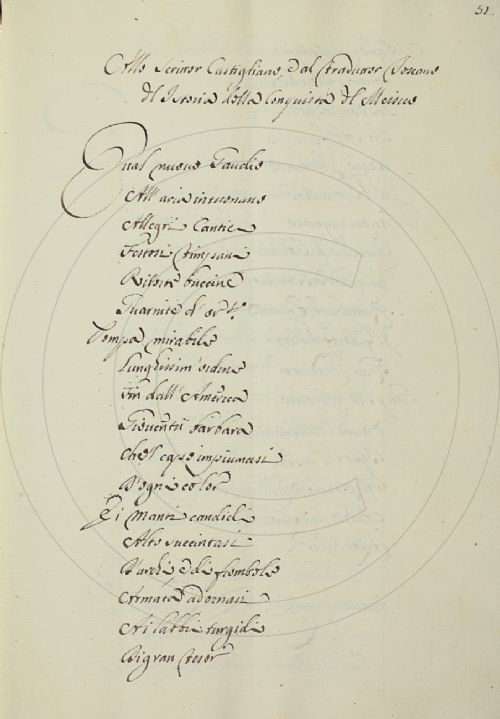 51.
Allo Scrittor Castigliano, e al traduttor Toscano
dl Istoria della Conquista dl Messico
Qual nuovo Gaudio
All' aria intuonano
Allegri Cantici
Festosi timpani
buccine
Guarnite d' or
Pompa mirabile
Lunghissim' ordine
Fin dall' America
Gioventù barbara
Che'l capo impiumasi
D'ogni color
Ei manti candidi
Alto succintasi
D'archi e di frombole
Armata adornasi
Ai labbri turgidi
Di gran tesor